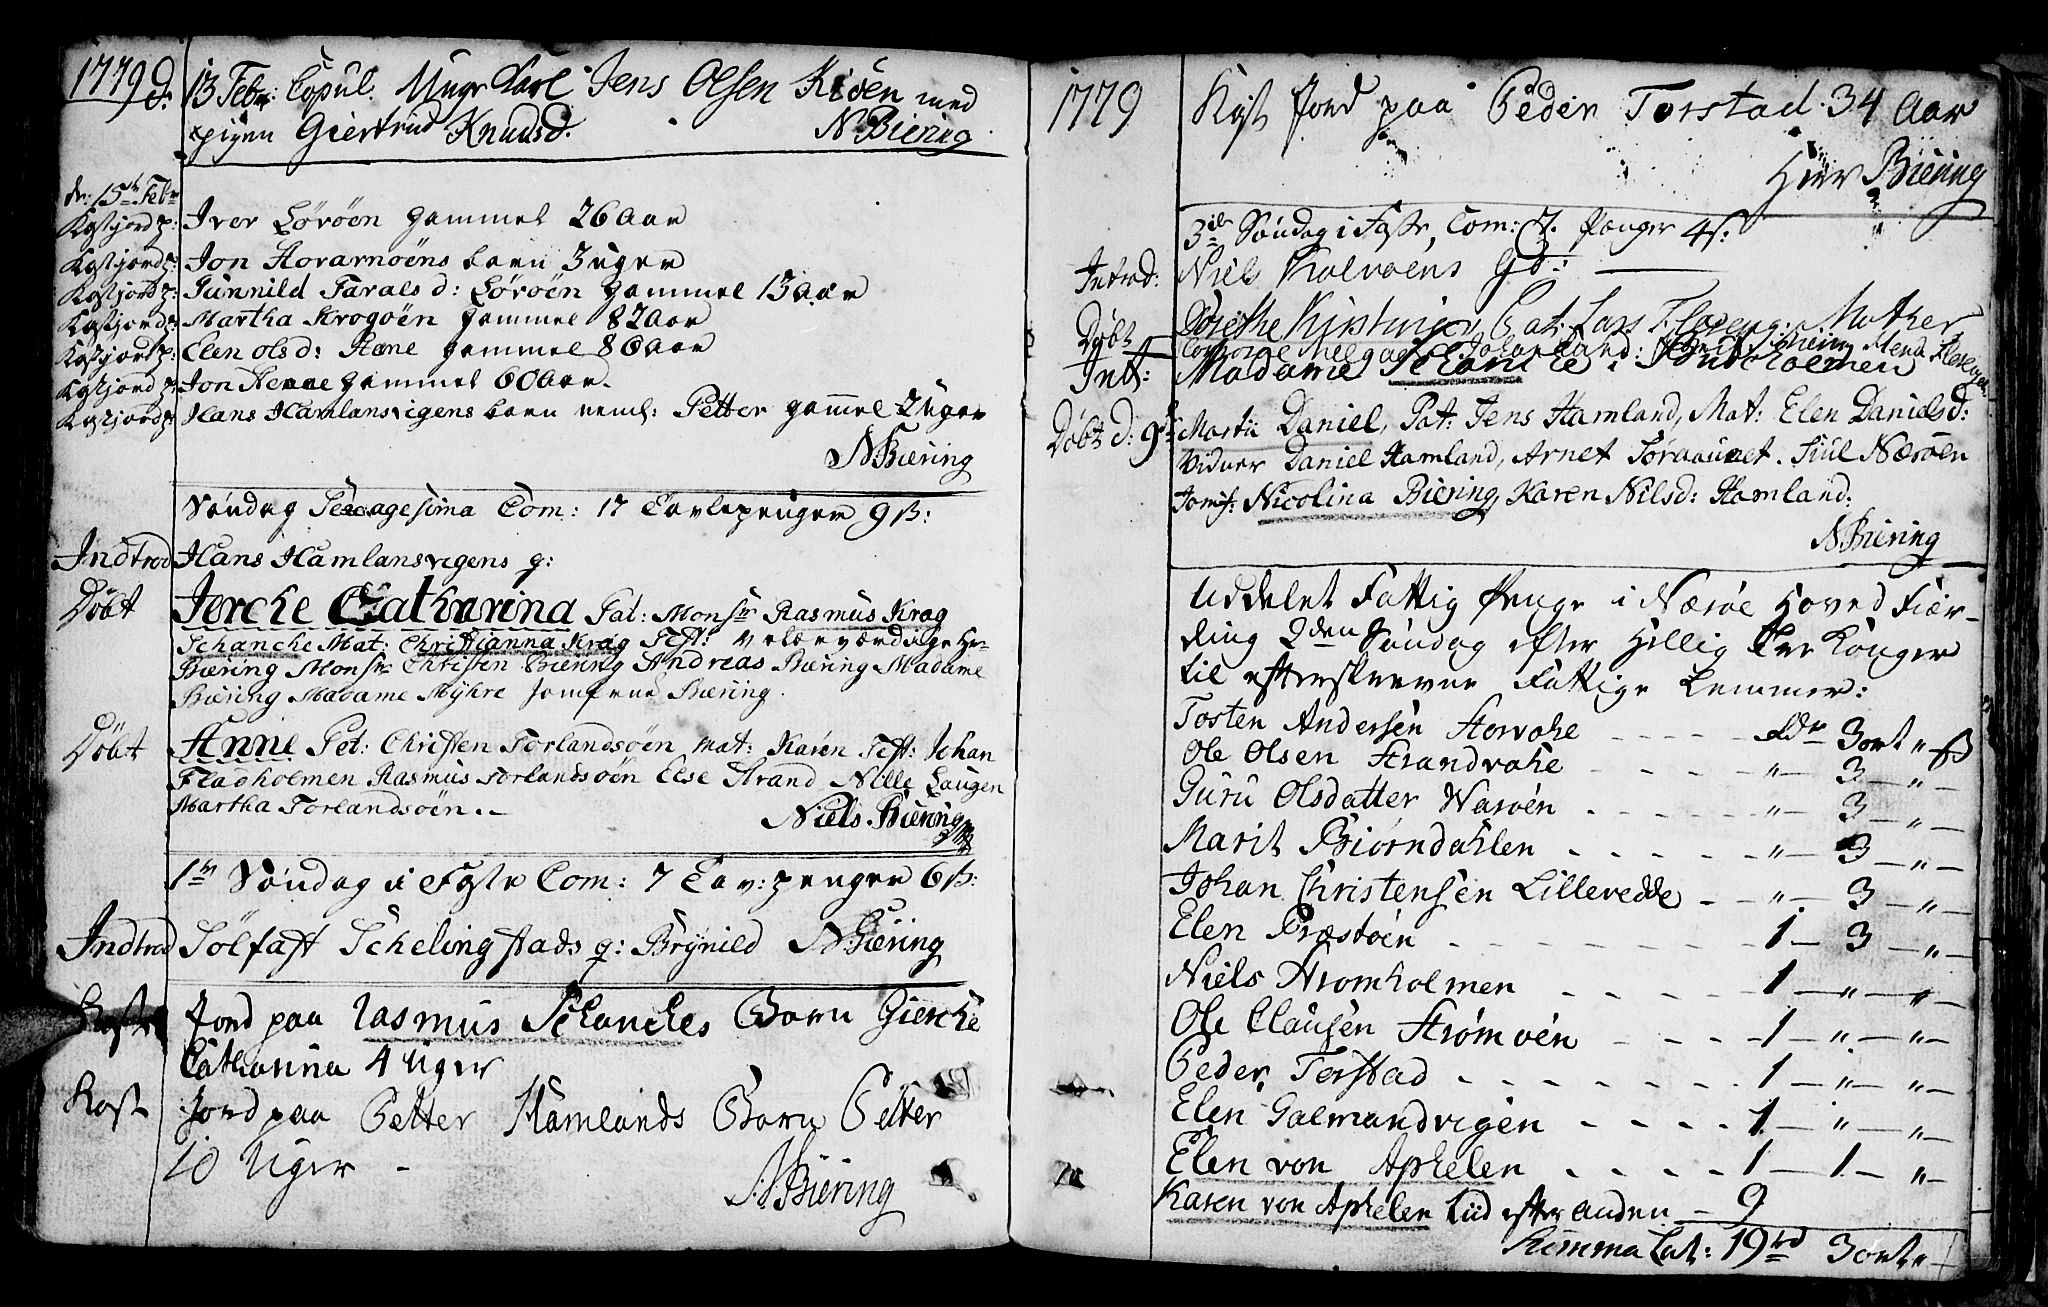 1779 d. 13 Febr: Copul. Unge Karl Jens Olsen Risen med
pigen Giertrud Knudsd. N Biering
dn: 15de Febr
Kastjord p: Iver Sørøen gammel 26 Aar
Kastjord p: Jon Hovarnøens barn 3 uger
Kastjord p: Gunnild Taralsd: Sørøen gammel 13 aar
Kastjord p: Martha Krogøen gammel 82 Aar
Kastjord p: Elen olsd: gammel 80 aar
Kastjord p: Jon gammel 60 Aar.
Kastjord p: Hans Hamlansvigens barn neml: Petter gammel 2 Uger
N Biering
Søndag Sexagesima Com: 17 Tavlepenger 9 ß:
Indtrod Hans Hamlansvigens q:
Døbt Jerche Catharina Pat: Monsr Rasmus Krag
Schanche Mat: Christianna Krag Test: Velærværdige Hr
Biering Monsr Christen Biering Andreas Biering Madame
Biering Madame Myhre Jomfrue Biering.
Døbt Anne Pat: Christen Torlandsøen Mat: Karen Test: Johan
Fladholmen Rasmus Torlandsøen Else Strand Nille Laugen
Martha Torlandsøen.
Niels Biering
1te Søndag i Faste Com: 7 Tav: penger 6 ß:
Indtrod Solfast Schelingstads q: Brynild N Biering
Kast Jord paa Rasmus Schanches Barn Gierche
Catharina 4 Uger
Kast Jord paa Petter Hamlands Barn Petter
10 Uger
N Biering
1779 Kast Jord paa Peder Torstad 34 Aar
Biering
3die Søndag i Faste, Com: 7. Penger 4 ß:
Introd: Niels Kalvøens
Døbt Dorethe Pat: Lars Mother
Int: Madame Schanche i
Døbt d: 9de Martii Daniel, Pat: Jens Hamland, Mat: Elen Danielsd:
Vidner Daniel Hamland, Arnet Siul Nærøen
Jomf: Nicolina Biering Karen Nilsd: Hamland:
N Biering
Uddelet Fattig Penge i Nærøe Hoved Fiær-
ding 2den Søndag efter Hellig Tre Konger
til efterskrevne Fattige Lemmer:
Tosten Andersen Horvahe - - - - Rdr 3 ort " ß
Ole Olsen Strandvahe - - - - " — 3 — " —
Guru Olsdatter Warøen - - - - " — 3 — " —
Marit Biørndahlen - - - - " — 3 — " —
Johan Christensen Lilleredde - - " — 3 — " —
Elen Præstøen - - - - 1 — 3 — " —
Niels Stromholmen - - - - 1 — " — " —
Ole Clausen Strømøen - - - - 1 — " — " —
Peder Torstad - - - - 1 — " — " —
Elen Galmandvigen - - - - 1 — " — " —
Elen von Aphelen - - - - 1 — 1 — " —
Karen von Aphelen Tid efter anden - 9
Summa Lat: 19 rd 3 ort "